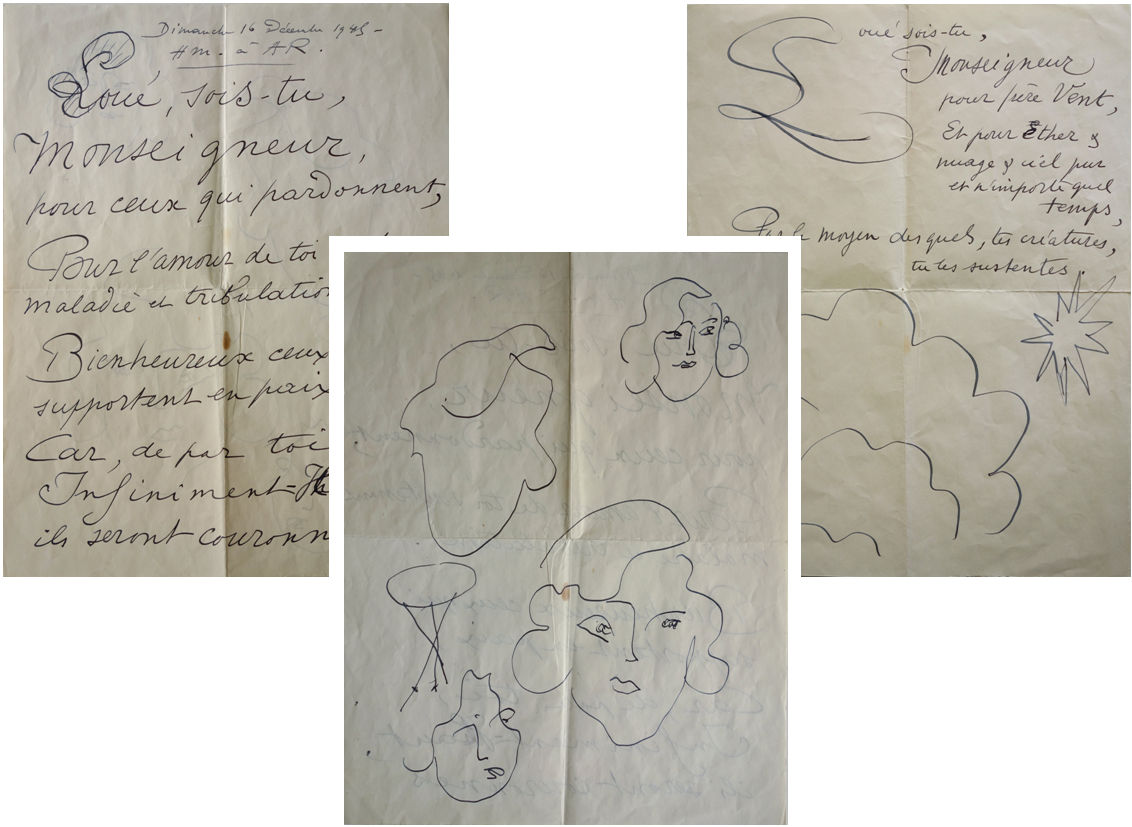 Dimanche 16 Décembre 1945 -
HM. à AR.
Loué, sois-tu,
Monseigneur,
pour ceux qui pardonnent,
Pour l'amour de toi
maladie et tribulation
Bienheureux ceux
supportent en paix
Car, de par toi
Infiniment-
ils seront couronn
Loué sois-tu,
Monseigneur
pour frère Vent,
Et pour Ether &
nuage & ciel pur
et n'importe quel
temps,
Par le moyen desquels, tes créatures,
tu les sustentes.